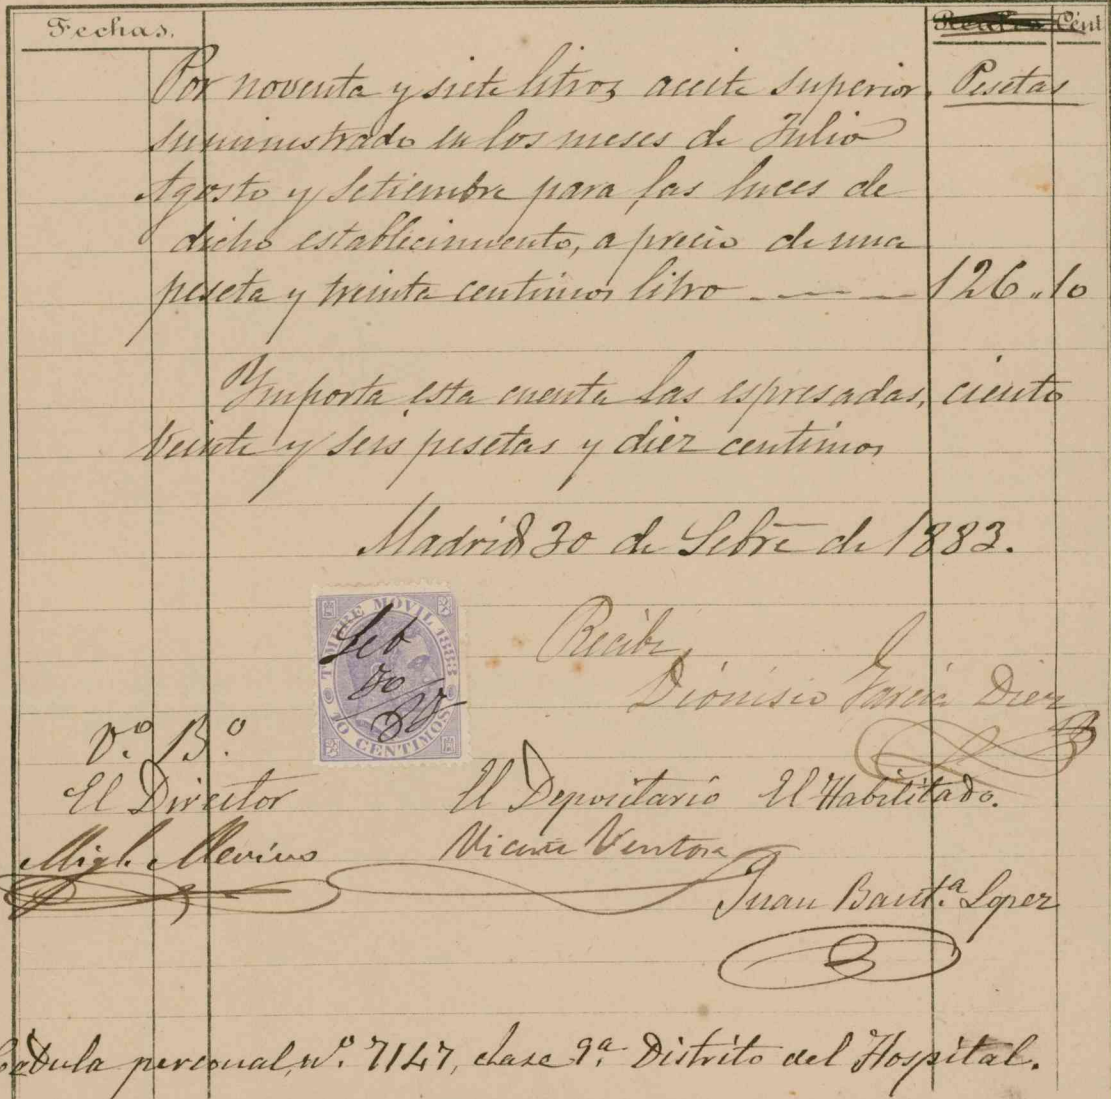 Fechas. Reales Cént
Por noventa y siete litros aceite superior. Pesetas
suministrado en los meses de Julio
Agosto y Setiembre para las luces de
dicho establecimiento, a precio de una
peseta y treinta centimos litro 126 „ 10
Ymporta esta cuenta las espresadas, ciento
veinte y seis pesetas y diez centimos
Madrid 30 de Sebre de 1883.
TIMBRE MÓVIL 1883
Seb
30
10 CENTIMOS
Recibi,
Dionisio Garcia Diez
Vº Bº
El Director El Depositario El Habilitado.
Migl. Merino Vicente Ventosa
Juan Baut.ª Lopez
Cedula personal, nº 7147, clase 9ª Distrito del Hospital.